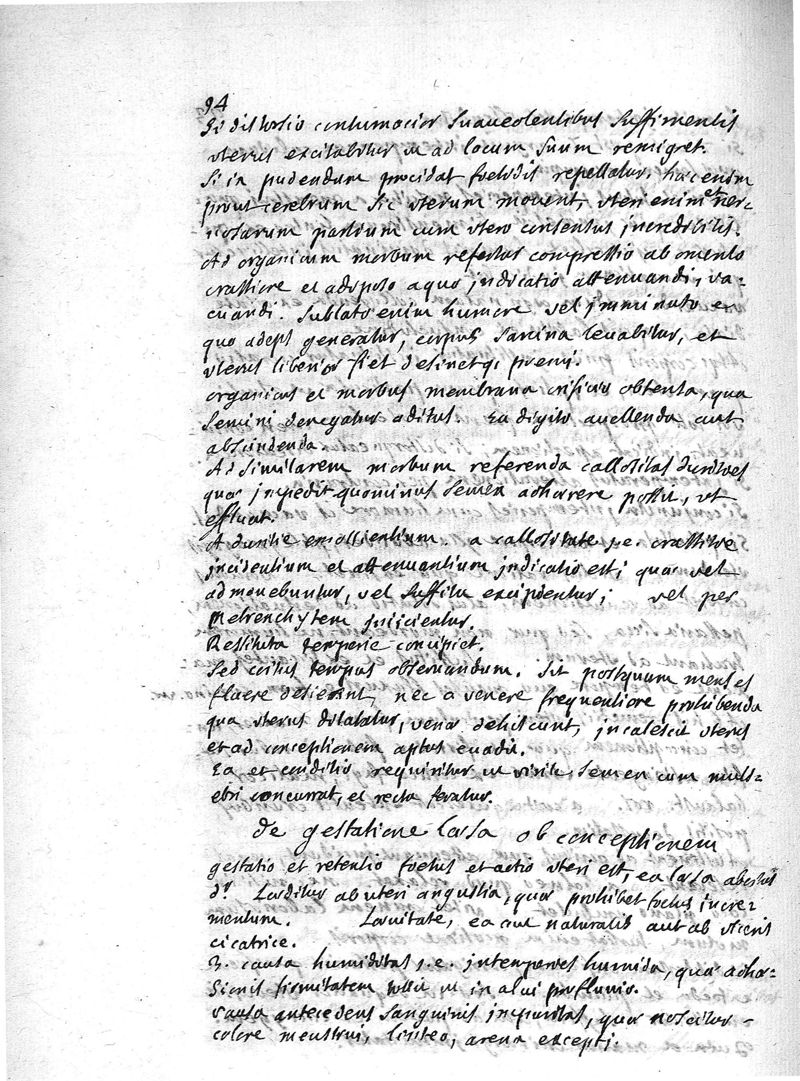 94
Si distorsio contumacior suaveolentibus suffimentis
uterus excitabitur ut ad locum suum remigret.
Si in pudendum procidat foetidis repellatur. hac enim
prout cerebrum sic uterum movent, uteri enim et ner-
vosarum partium cum utero consensus incredibilis.
Ad organicum morbum refertur compressio ab omento
crassiore et adiposo a quo indicatio attenuandi, va-
cuandi. Sublato enim humore vel imminuto e
quo adeps generatur, corpus sarcina levabitur, et
uterus liberior fiet desinetq; premi.
organicus et morbus membrana orificio obtensa, qua
semini denegatur aditus. Ea digito avellenda aut
abscindenda.
Ad similarem morbum referenda callositas durities
quae impedit quominus semen adhaerere possit, ut
effluat.
A duritie emollientium. a callositate i.e. crassitie
incidentium et attenuantium indicatio est; quae vel
admovebuntur, vel suffitu excipientur; vel per
metrenchytem iniicientur.
Restituta temperie concipiet.
Sed coitus tempus observandum. Sit postquam menses
fluere desierint, nec a venere frequentiore prohibenda
qua uterus dilatatur, venae dehiscunt, incalescit uterus
et ad conceptionem aptus evadit.
Ea et conditio requiritur ut virile semen cum muli-
ebri concurrat, et recta feratur.
de gestatione laesa ob conceptionem
gestatio et retentio foetus et actio uteri est, ea laesa
laeditur ab uteri angustia, quae prohibet foetus incre-
mentum. Laevitate, ea aut naturalis aut ab ulceris
cicatrice.
3. causa humiditas i.e. intemperies humida, quae adhae-
sionis firmitatem tollit ut in alvi profluvio.
causa antecedens sanguinis impuritas, quae noscitur
colore menstrui, linteo, arena excepti.